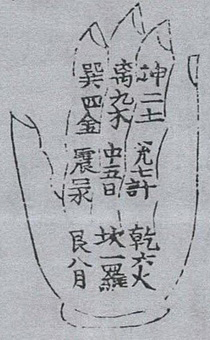 坤二土 兌七計 乾六火
离九木 中五日 坎一羅
巽四金 震三水 艮八月